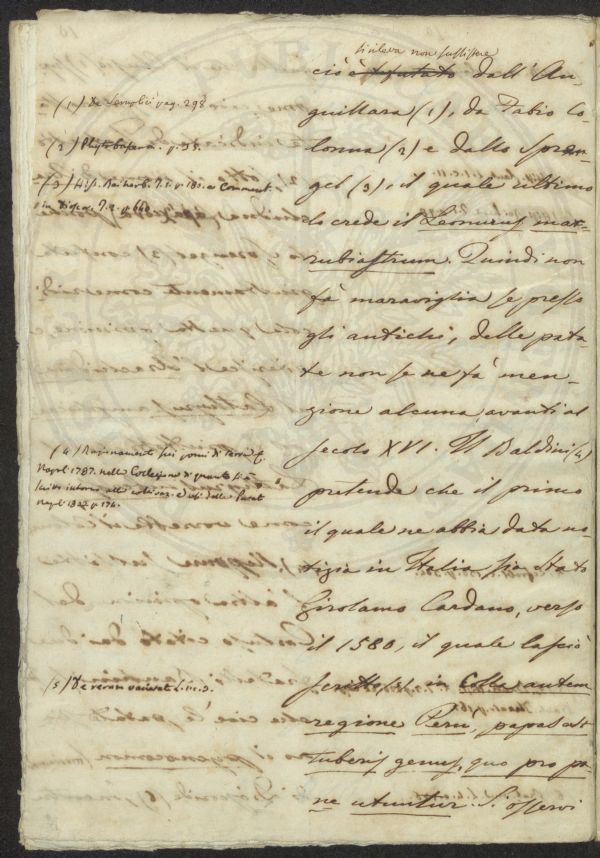 si rileva non sussistere
ciò è dall'An-
guillara (1), da Fabio Co-
lonna (2) e dallo Spren-
gel (3), il quale ultimo
lo crede il Leonurus mar-
rubiastrum. Quindi non
fà maraviglia se presso
gli antichi, delle pata-
te non se ne fà men-
zione alcuna avanti al
secolo XVI. Il Baldini (4)
pretende che il primo
il quale ne abbia data no-
tizia in Italia sia stato
Girolamo Cardano, verso
il 1580, il quale lasciò
scritto (5) in Colla autem
regione Peru, papas est
tuberis genus, quo pro pa-
ne utuntur. S'osservi
(1) De Semplici pag. 298
(2) Phytobasan. p.
(3) Hist. Rei herb. T. 1. p. 180. e Comment.
in Diosc. T. 2. p.
(4) Ragionamenti sui pomi di terra
Napoli 1787. nella Collezione di quanto si è
scritto intorno alla e usi delle Patat
Napoli p. 174.
(5) De rerum varietat. L.